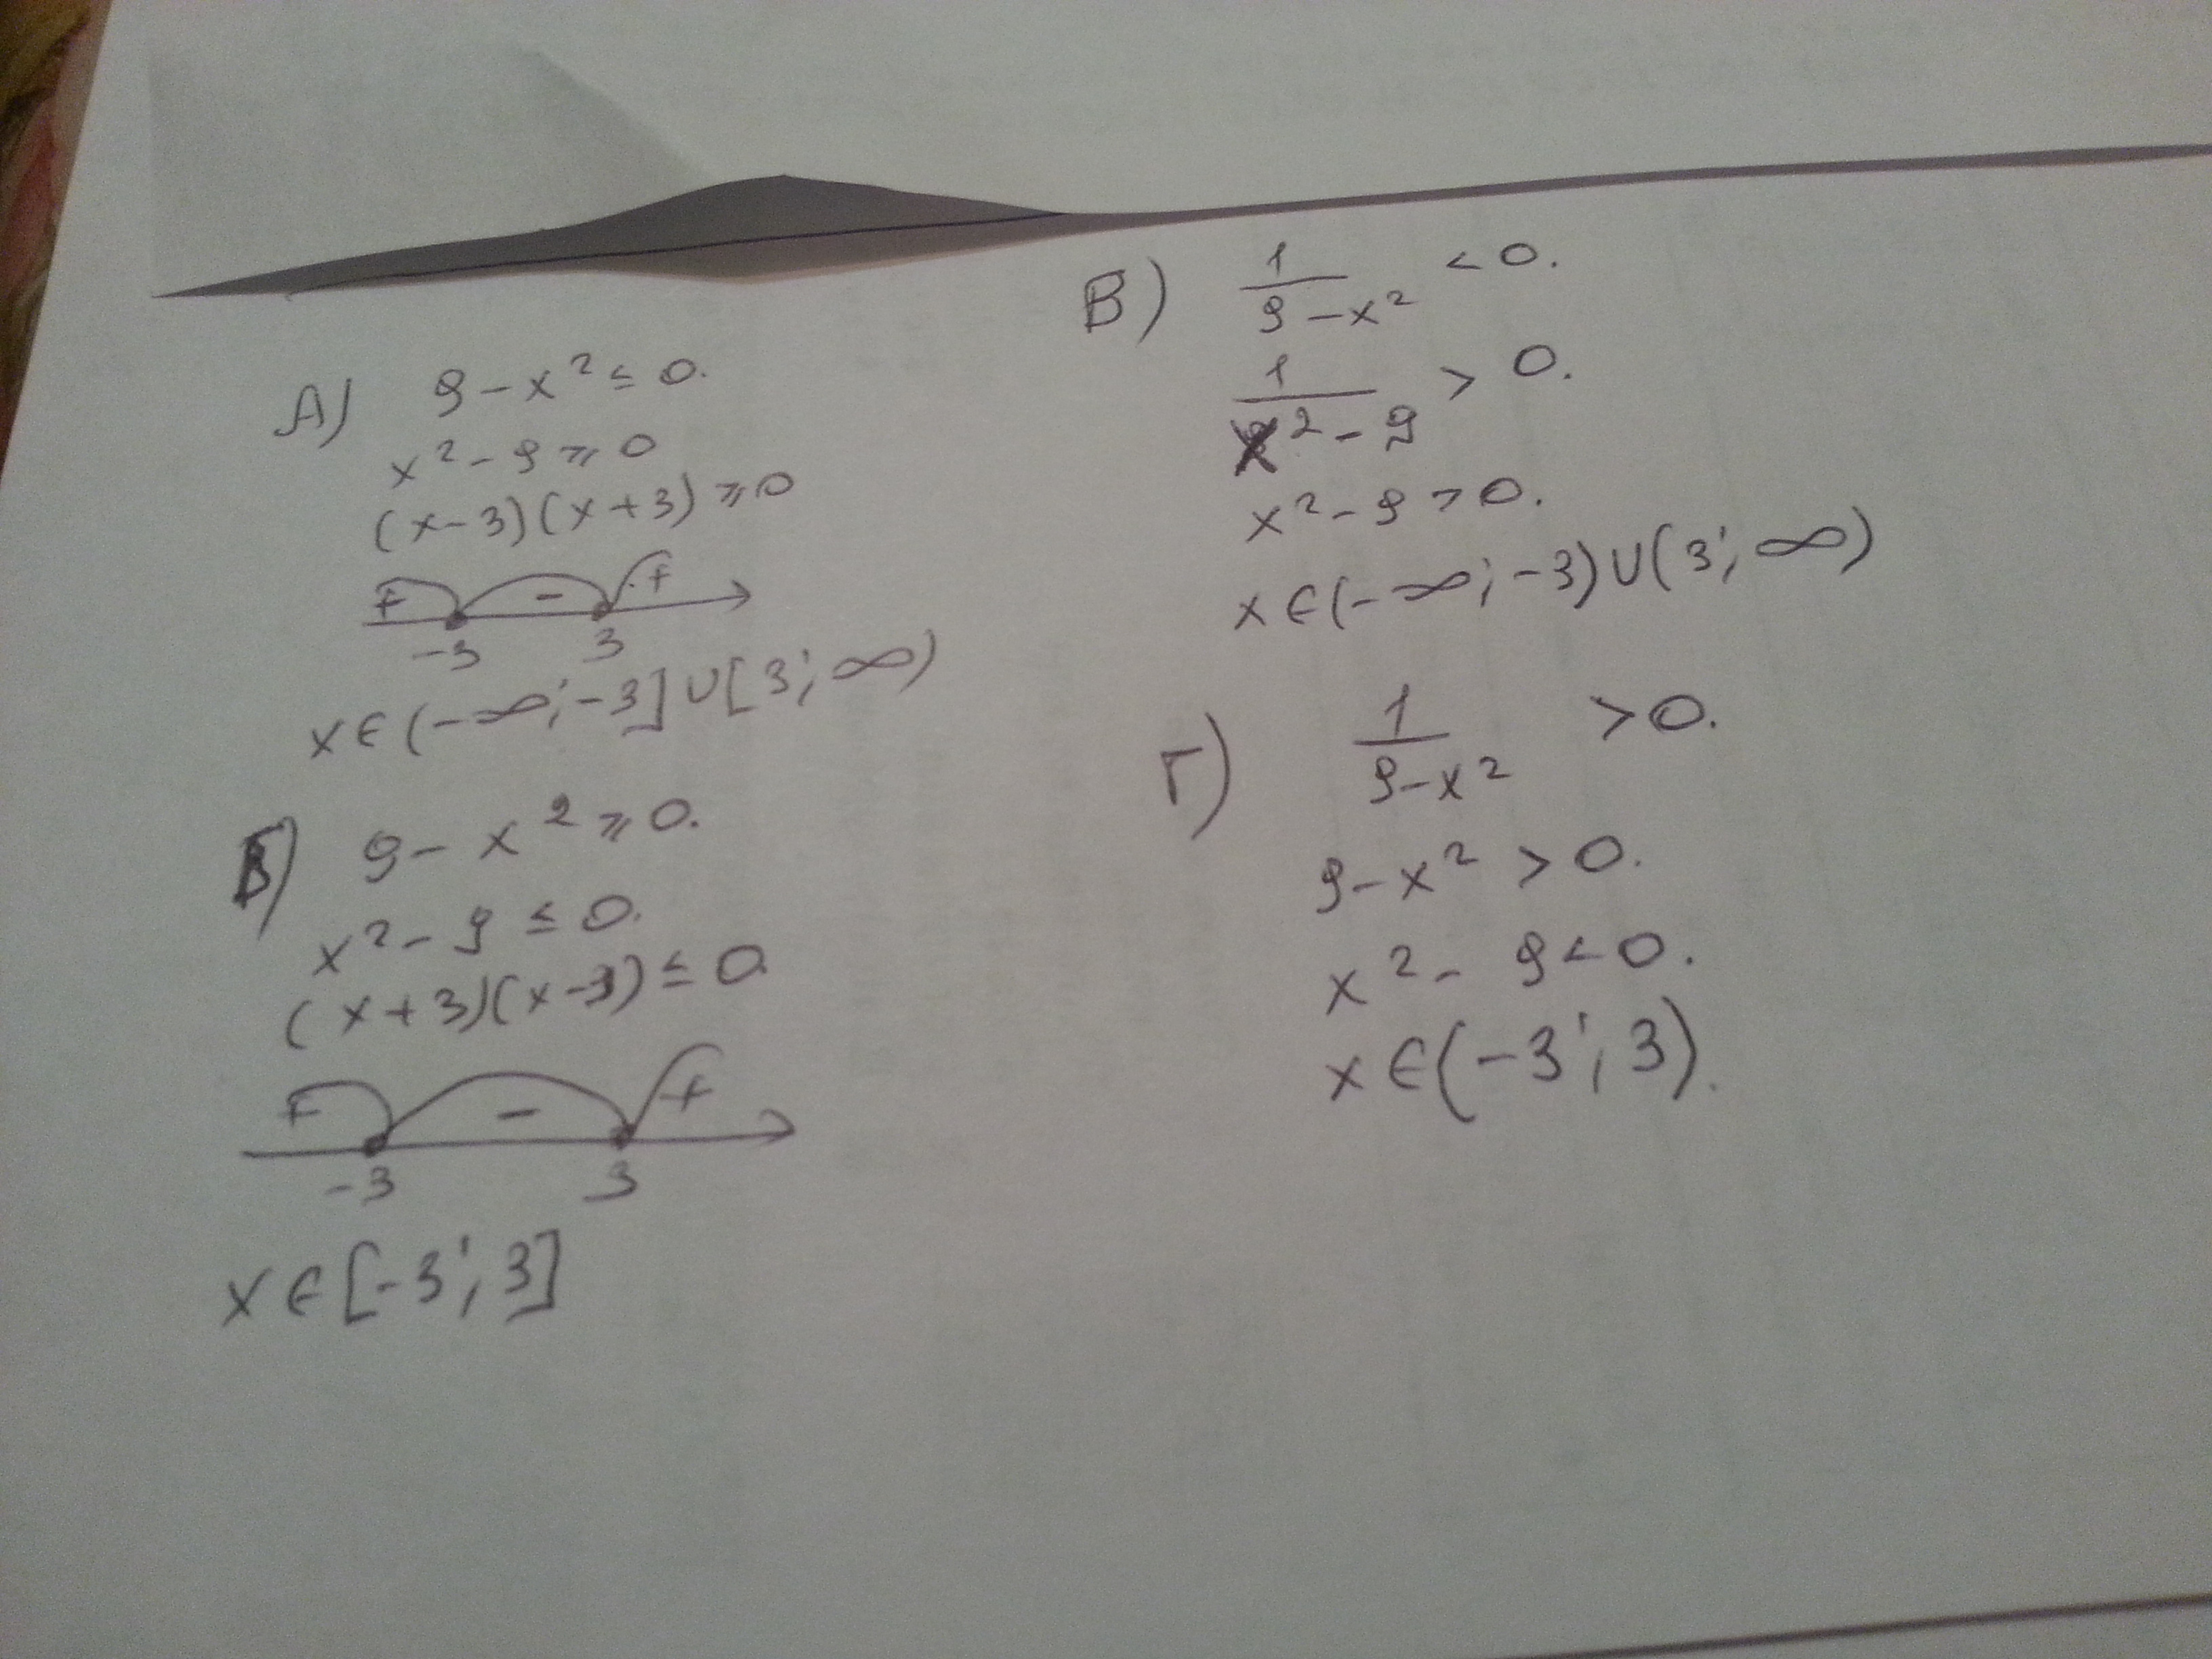 А) 9 - x² ≤ 0.
x² - 9 ⩾ 0
(x - 3)(x + 3) ⩾ 0
+ - +
-3 3
x ∈ (-∞; -3] ∪ [3; ∞)
Б) 9 - x² ⩾ 0.
x² - 9 ≤ 0.
(x + 3)(x - 3) ≤ 0
+ - +
-3 3
x ∈ [-3; 3]
В) 1/(9 - x²) < 0.
1/(x² - 9) > 0.
x² - 9 > 0.
x ∈ (-∞; -3) ∪ (3; ∞)
Г) 1/(9 - x²) > 0.
9 - x² > 0.
x² - 9 < 0.
x ∈ (-3; 3).